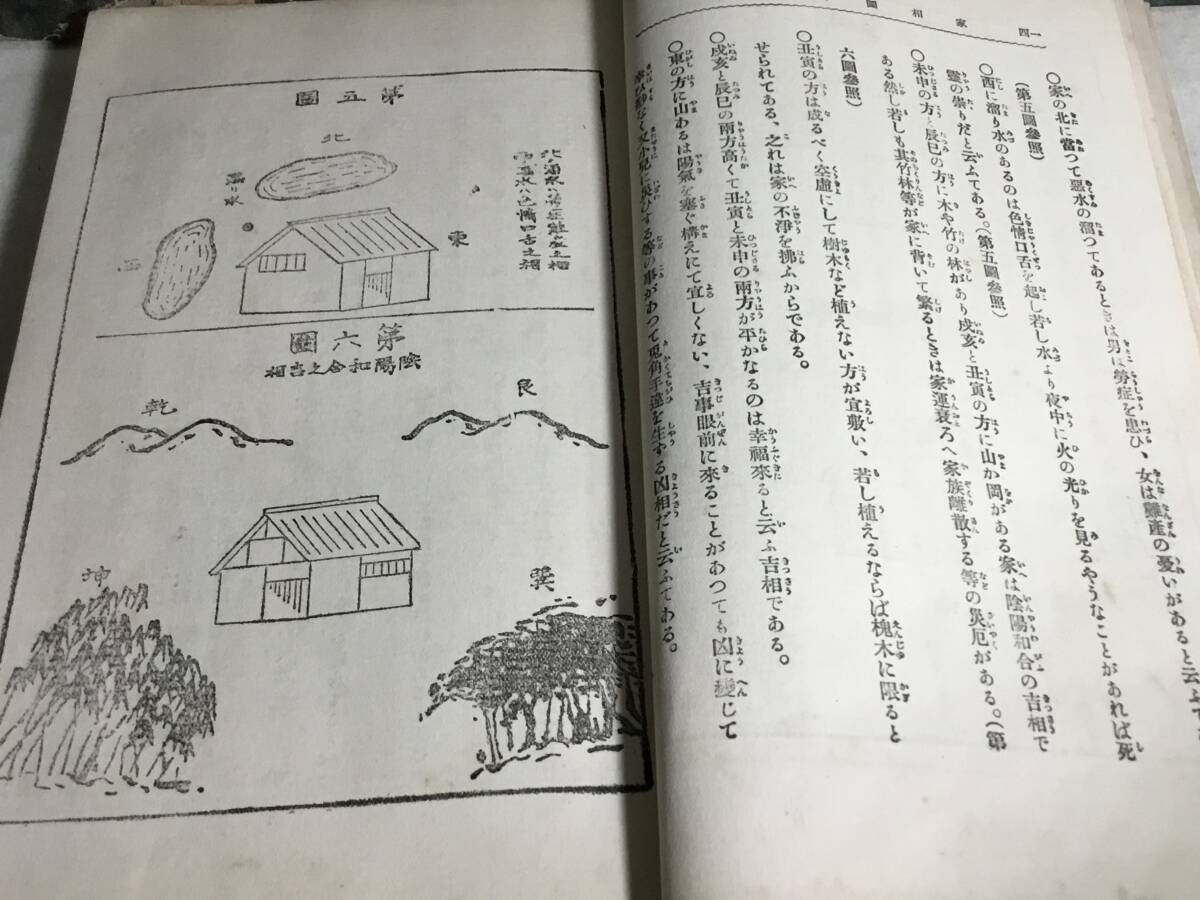 一四
家相圖
○家の北に當つて惡水の溜つてあるときは男は勞症を患ひ、女は難産の憂いがあると云ふて
(第五圖參照)
○西に溜り水のあるのは色情口舌を起し若し水より夜中に火の光りを見るやうなことがあれば死
靈の祟りだと云ふてある。(第五圖參照)
○未申の方と辰巳の方に木や竹の林があり戌亥と丑寅の方に山か岡がある家は陰陽和合の吉相で
ある然し若しも其竹林等が家に背いて繁るときは家運衰ろへ家族離散する等の災厄がある。(第
六圖參照)
○丑寅の方は成るべく空虛にして樹木など植えない方が宜敷い、若し植えるならば槐木に限ると
せられてある、之れは家の不淨を拂ふからである。
○戌亥と辰巳の兩方高くて丑寅と未申の兩方が平かなるのは幸福來ると云ふ吉相である。
○東の方に山あるは陽氣を塞ぐ構えにて宜しくない、吉事眼前に來ることがあつても凶に變じて
なく又小兒に災ひする等の事があつて兎角手違を生する凶相だと云ふてある。
第五圖
北
溜り水
西
東
第六圖
陰陽和合之吉相
乾
艮
坤
巽